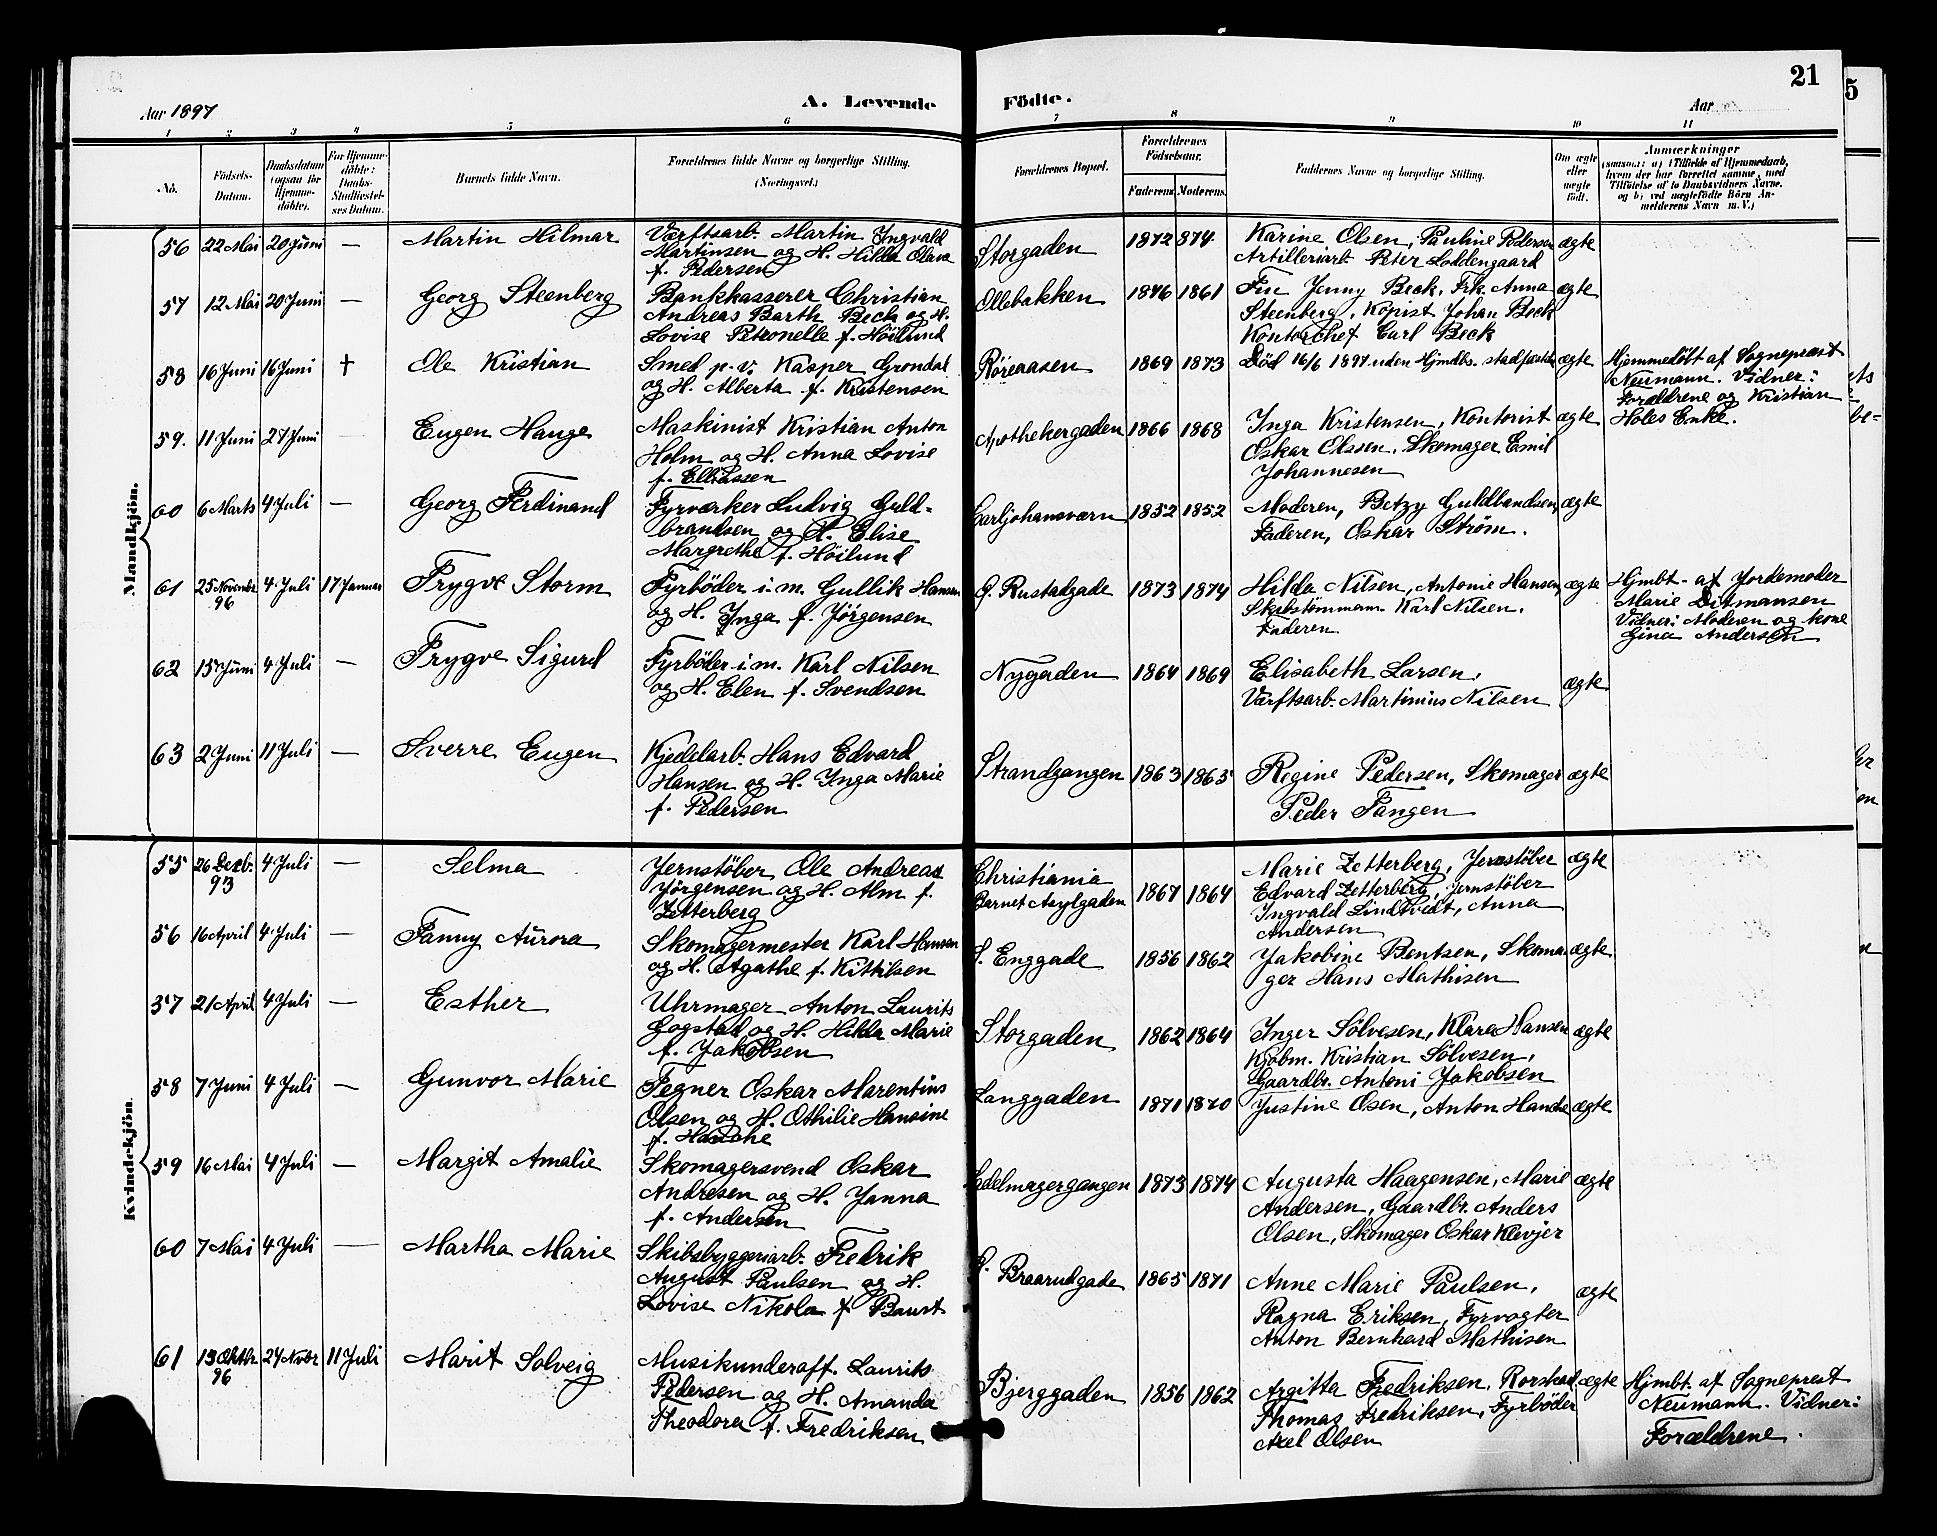 21
5
Aar 1897
A. Levende
Födte.
Aar
1 2 3 4 5 6 7 8 9 10 11
No.
Födsels-Datum.
Daabsdatum (ogsaa for Hjemme-döbte).
For Hjemme-döbte: Daabs-Stadfæstel-ses Datum.
Barnets fulde Navn.
Forældrenes fulde Navne og borgerlige Stilling. (Næringsvei.)
Forældrenes Bopæl.
Forældrenes Födselsaar.
Faderens. Moderens.
Faddernes Navne og borgerlige Stilling.
Om ægte eller uægte födt.
Anmærkninger
(saasom: a) i Tilfælde af Hjemmedaab, hvem der har forrettet samme, med Tilföielse af to Daabsvidners Navne, og b) ved uægtefödte Börn Anmelderens Navn m. V.)
Mandkjön.
56 22 Mai 20 Juni — Martin Hilmar
Værftsarb. Martin Ingvald
Martinsen og H. Hilda Olava
f. Pedersen
Storgaden 1872 874
Karine Olsen, Pauline Pedersen
Artilleriarb. Peter Loddengaard
ægte
57 12 Mai 20 Juni — Georg Steenberg
Bankkasserer Christian
Andreas Barth Beck og H.
Lovise Petronelle f. Höilund
Ollebakken 1846 1861
Fru Jenny Beck, Frk. Anna
Steenberg, Kopist Johan Beck
Kontorchef Carl Beck
ægte
58 16 Juni 16 Juni † Ole Kristian
Smed p. v. Kasper Grondal
og H. Alberta f. Kristensen
Röreaasen 1869 1873
Död 16/6 1897 uden Hjmdbs. stadfæstelse
ægte
Hjemmedöbt af Sogneprest
Neumann. Vidner:
Forældrene og Kristian
Holes Enke.
59. 11 Juni 27 Juni — Eugen Hauge
Maskinist Kristian Anton
Holm og H. Anna Lovise
f. Elliassen
Apothekergaden 1866 1868
Inga Kristensen, Kontorist
Oskar Olssen, Skomager Emil
Johannesen
ægte
60 6 Marts 4 Juli — Georg Ferdinand
Fyrværker Ludvig Guld-
brandsen og H. Elise
Margrethe f. Höilund
Carljohansværn 1852 1852
Moderen, Betzy Guldbandsen,
Faderen, Oskar Ström.
ægte
61 25 November 96 4 Juli 17 Januar Trygve Storm
Fyrböder i. m. Gullik Hansen
og H. Inga f. Jörgensen
G. Rustadgade 1873 1874
Hilda Nilsen, Antonie Hansen,
Skibstömmerm. Karl Nilsen,
Faderen
ægte
Hjmbt. af Jordemoder
Marie Ditmansen
Vidner: Moderen og kone
Gina Andersen
62 15 Juni 4 Juli — Trygve Sigurd
Fyrböder i. m. Karl Nilsen
og H. Elen f. Svendsen
Nygaden 1864 1869
Elisabeth Larsen,
Værftsarb. Martinius Nilsen
ægte
63 2 Juni 11 Juli — Sverre Eugen
Kjedelarb. Hans Edvard
Hansen og H. Inga Marie
f. Pedersen
Strandgangen 1863 1865
Regine Pedersen, Skomager
Peder Tangen
ægte
Kvindekjön.
55 26 Decb. 93 4 Juli — Selma
Jernstöber Ole Andreas
Jörgensen og H. Alm f.
Zetterberg
Christiania
Barnet Asylgaden 1867 1864
Marie Zetterberg, Jernstöber
Edvard Zetterberg, Jernstöber
Ingvald Lindtvidt, Anna
Andersen
ægte
56 16 April 4 Juli — Fanny Aurora
Skomagermester Karl Hansen
og H. Agathe f. Kittilsen
S. Enggade 1856 1862
Jakobine Bentsen, Skoma
ger Hans Mathisen
ægte
57 21 April 4 Juli — Esther
Uhrmager Anton Laurits
Gogstad og H. Hilda Marie
f. Jakobsen
Storgaden 1862 1864
Inger Sölvesen, Klara Hansen
Kjöbm. Kristian Sölvesen,
Gaardbr. Antoni Jakobsen
ægte
58 7 Juni 4 Juli — Gunvor Marie
Tegner Oskar Marentius
Olsen og H. Othilie Hansine
f. Hansche
Langgaden 1871 1870
Justine Osen, Anton Handse
ægte
59 16 Mai 4 Juli — Margit Amalie
Skomagersvend Oskar
Andresen og H. Janna
f. Andersen
Sadelmagergangen 1873 1874
Augusta Haagensen, Marie
Andersen, Gaardbr. Anders
Olsen, Skomager Oskar Klevjer
ægte
60 7 Mai 4 Juli — Martha Marie
Skibsbyggeriarb. Fredrik
August Paulsen og H.
Lovise Nikola f. Baust
G. Braarudgade 1865 1871
Anne Marie Paulsen,
Ragna Eriksen, Fyrvogter
Anton Bernhard Mathisen
ægte
61 13 Oktbr. 96 24 Novbr 11 Juli Marit Solveig
Musikunderoff. Laurits
Pedersen og H. Amanda
Theodora f. Fredriksen
Bjerggaden 1856 1862
Argitta Fredriksen, Rorskad
Thomas Fredriksen, Fyrböder
Axel Olsen
ægte
Hjmbt. af Sogneprest
Neumann. Vidner:
Forældrene.